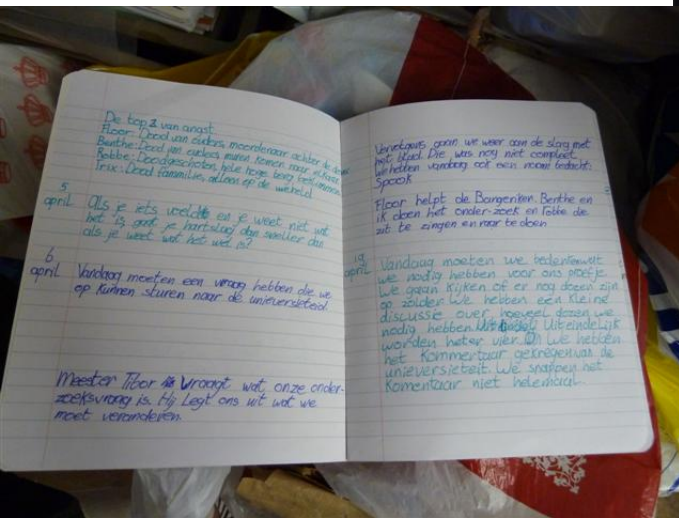 De top 2 van angst
Floor: Dood van ouders, moordenaar achter de deur
Benthe: Dood van ouders, muren komen naar elkaar
Robbe: Doodgeschoten, hele hoge berg beklimmen
Trix: Dood fammilie, alleen op de wereld
5
april
Als je iets voeld en je weet niet wat
het is gaat je hartslag dan sneller dan
als je weet wat het wel is?
6
april
Vandaag moeten een vraag hebben die we
op kunnen sturen naar de unieversieteid
Meester Tibor vraagt wat onze onder-
zoeksvraag is. Hij legt ons uit wat we
moet veranderen.
Vervolgens gaan we weer aan de slag met
het blad. Die was nog niet compleet.
We hebben vandaag ook een naam bedacht:
Spook
Floor helpt de Bangeriken. Benthe en
ik doen het onder-zoek en robbe die
zit te zingen en raar te doen
19
april
Vandaag moeten we bedenken wat
we nodig hebben voor ons proefje.
We gaan kijken of er nog dozen zijn
op zolder. We hebben een kleine
discussie over hoeveel dozen we
nodig hebben. Uiteindelijk
worden het er vier. We hebben
het kommertaar gekregen van de
unieversieteit. We snappen het
komentaar niet helemaal.